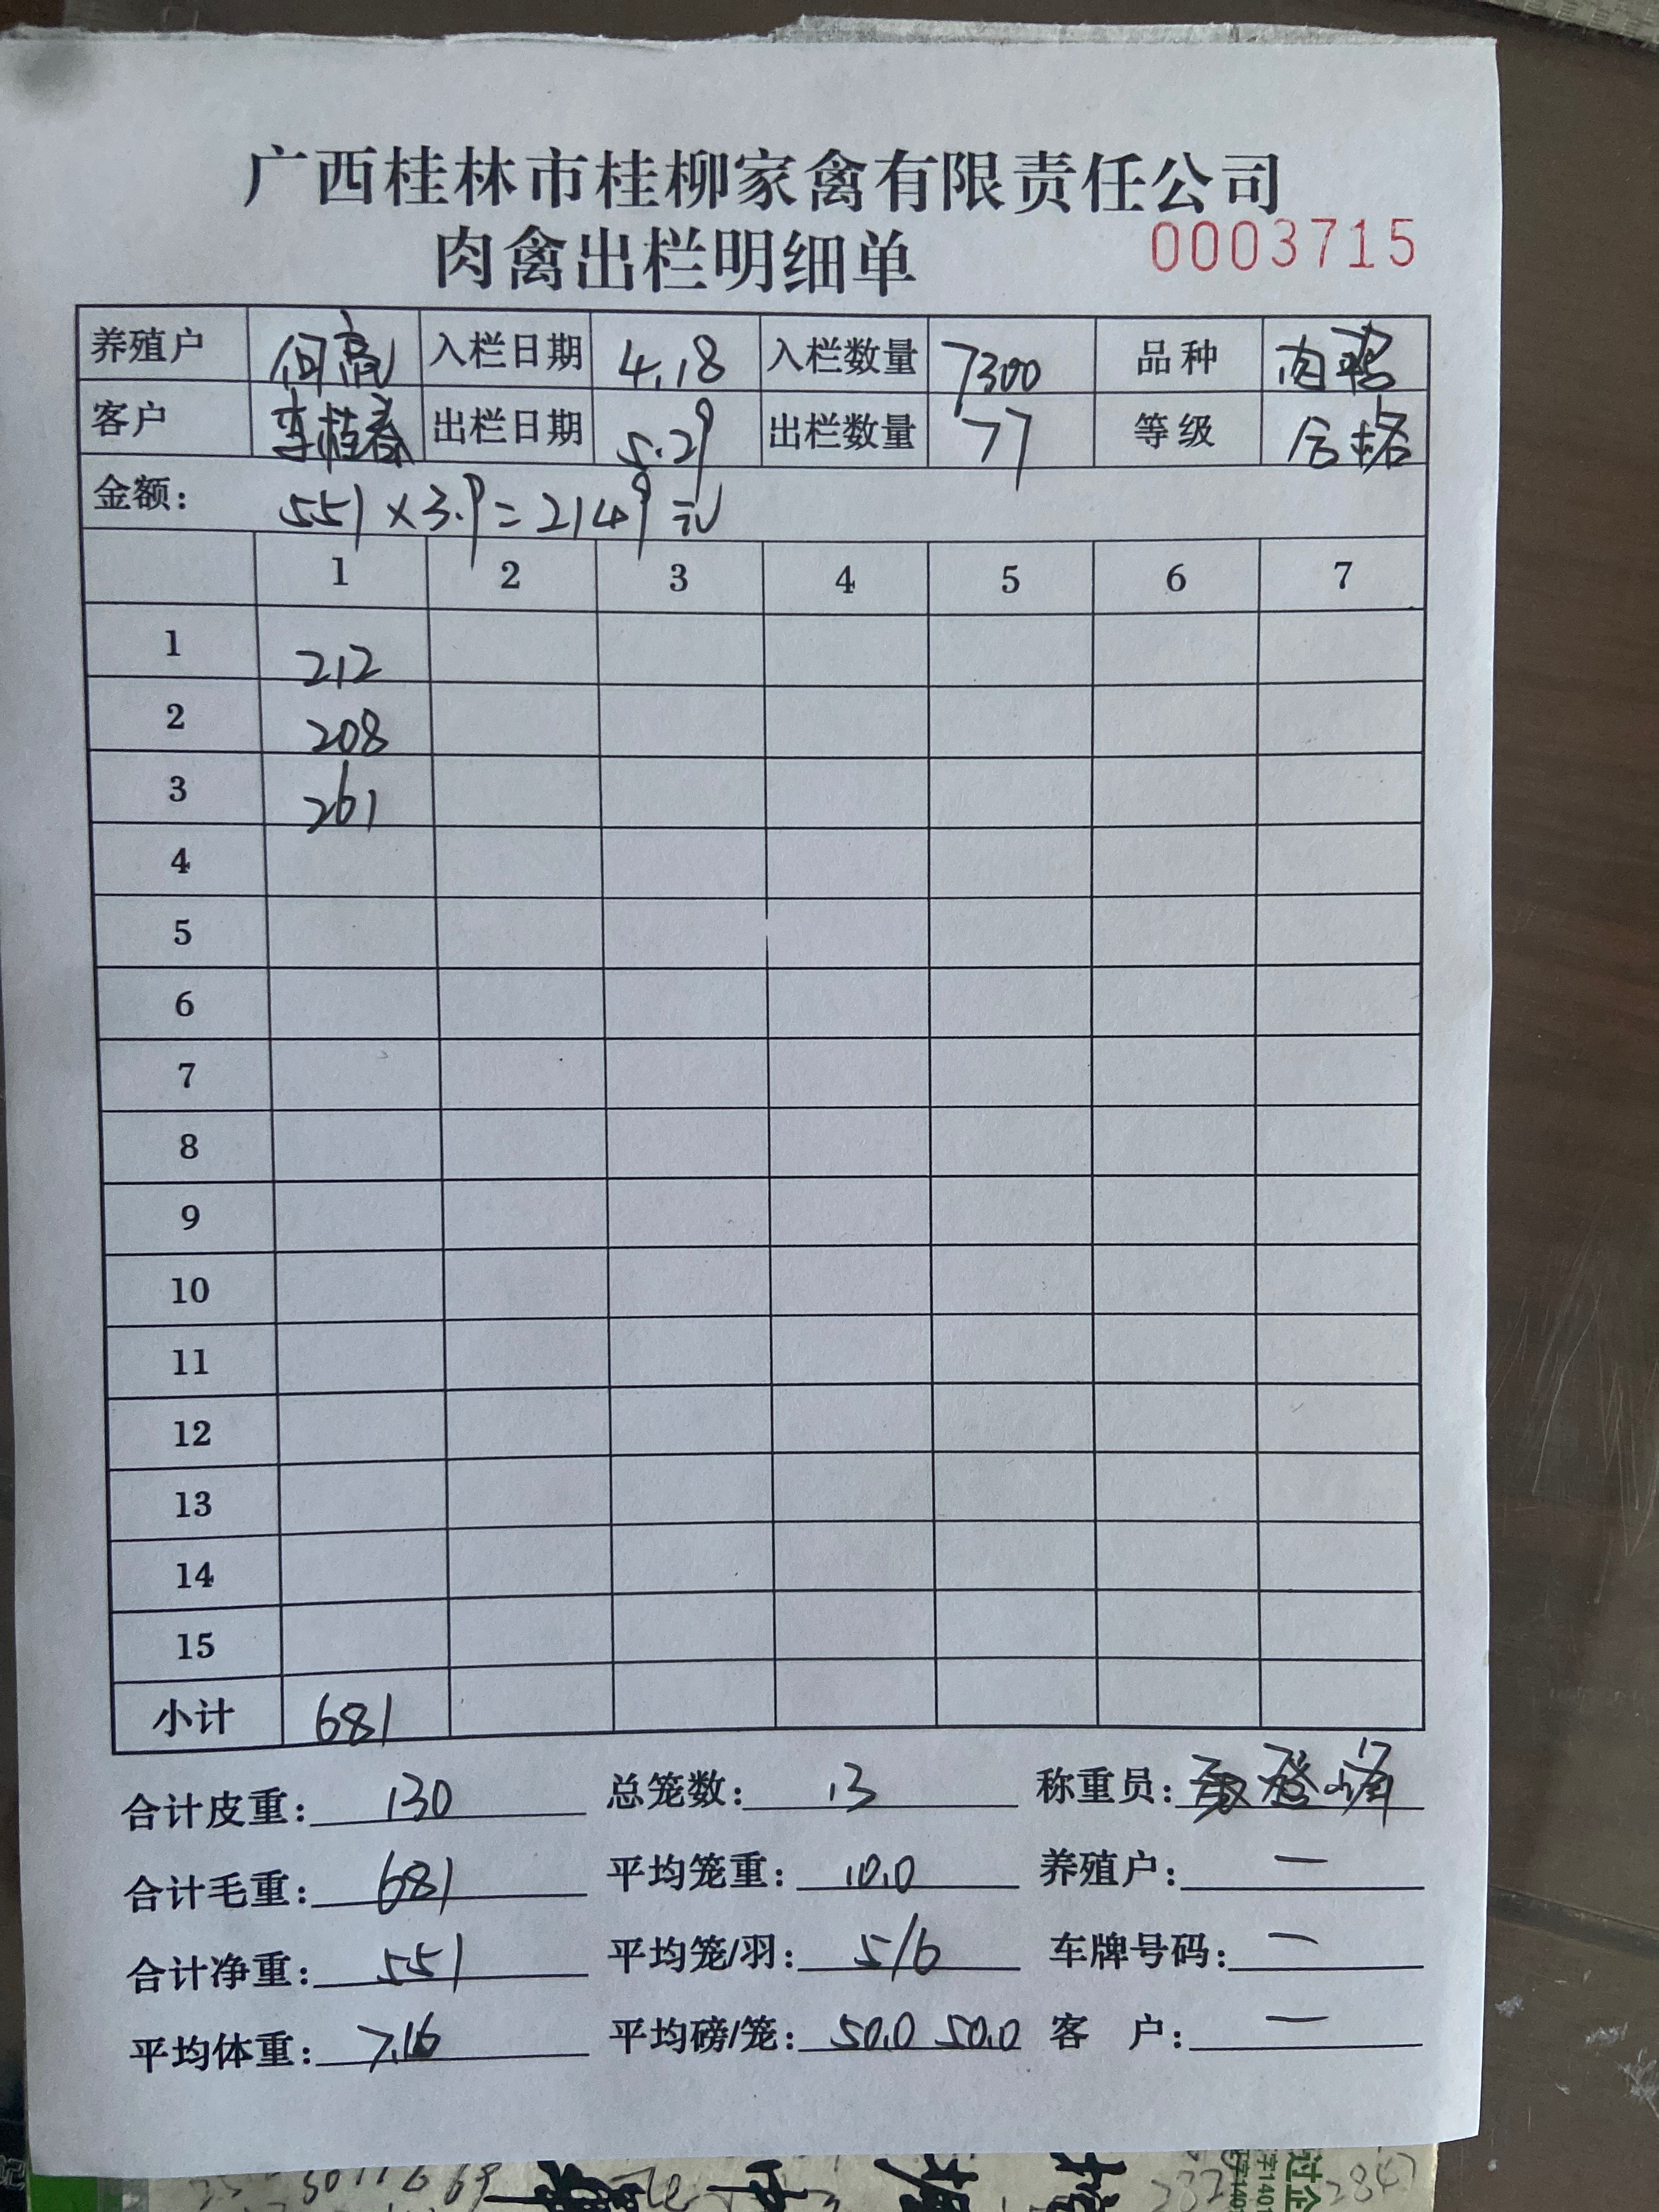 广西桂林市桂柳家禽有限责任公司
肉禽出栏明细单 0003715
养殖户 何高 入栏日期 4.18 入栏数量 7300 品种 肉鸭
客户 李桂春 出栏日期 5.29 出栏数量 77 等级 合格
金额: 551×3.9=2149元
1 2 3 4 5 6 7
1 212
2 208
3 261
4
5
6
7
8
9
10
11
12
13
14
15
小计 681
合计皮重: 130 总笼数: 13 称重员: 登峰
合计毛重: 681 平均笼重: 10.0 养殖户: —
合计净重: 551 平均笼/羽: 5/6 车牌号码: —
平均体重: 7.16 平均磅/笼: 50.0 50.0 客 户: —